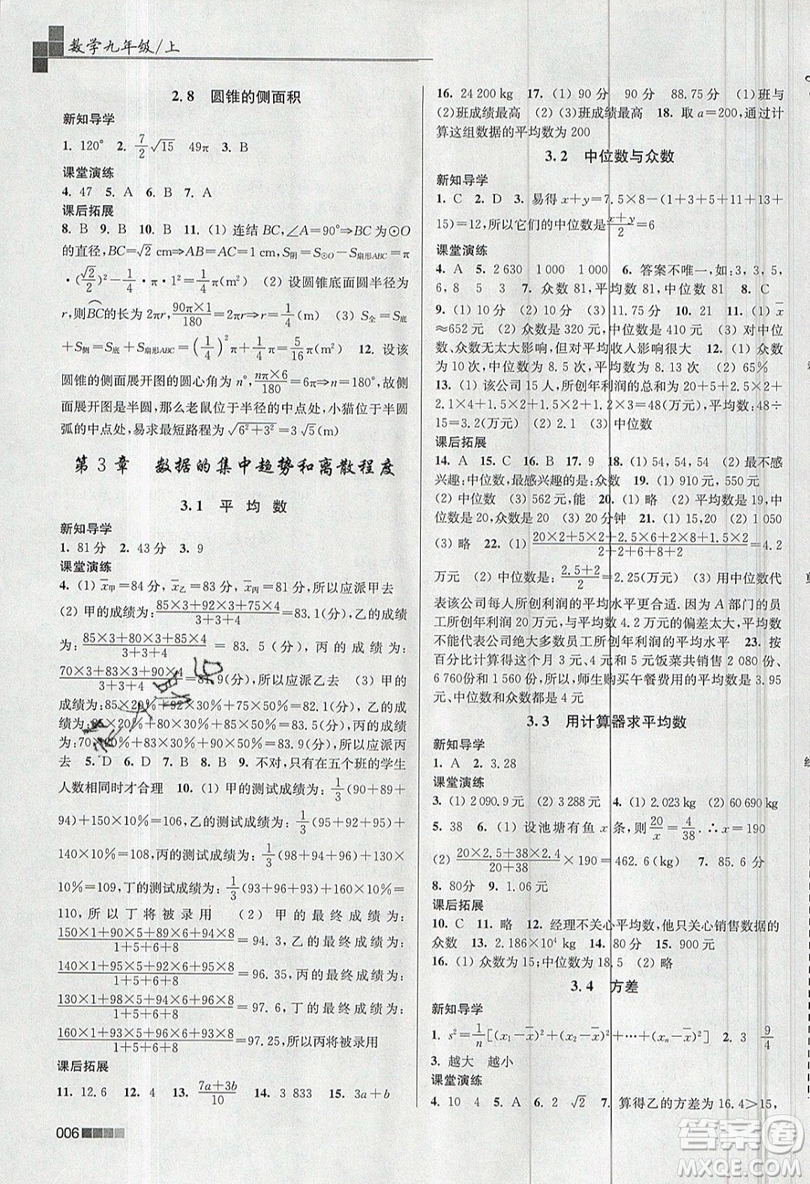 数学九年级/上
2.8 圆锥的侧面积
新知导学
1. 120° 2. 7/2 √15 49π 3. B
课堂演练
4. 47 5. A 6. B 7. A
课后拓展
8. B 9. B 10. B 11. (1) 连结 BC,∠A=90°⇒BC 为⊙O
的直径,BC=√2 cm⇒AB=AC=1 cm,S阴=S⊙O-S扇形ABC=π
·(√2/2)²-1/4π=1/4π(m²) (2) 设圆锥底面圆半径为
r,则BC的长为 2πr,90π×1/180=2πr,r=1/4(m) (3) S全=S底
+S侧=S底+S扇形ABC=(1/4)²π+1/4π=5/16π(m²) 12. 设该
圆锥的侧面展开图的圆心角为 n°,nπ×6/180=6π⇒n=180°,故侧
面展开图是半圆,那么老鼠位于半径的中点处,小猫位于半圆
弧的中点处,易求最短路程为√(6²+3²)=3√5(m)
第 3 章 数据的集中趋势和离散程度
3.1 平 均 数
新知导学
1. 81分 2. 43分 3. 9
课堂演练
4. (1) x̄甲=84分,x̄乙=82分,x̄丙=84分,所以应派甲去
(2) 甲的成绩为:(85×3+92×3+75×4)/(3+3+4)=83.1(分),乙的成绩
为:(85×3+83×3+80×4)/(3+3+4)=83.5(分),丙的成绩为:
(70×3+83×3+90×4)/(3+3+4)=81.9(分),所以应派乙去 (3) 甲的
成绩为:85×20%+92×30%+75×50%=82.1(分),乙的成绩
为:85×20%+80×30%+83×50%=82.5(分),丙的成绩
为:70×20%+83×30%+90×50%=83.9(分),所以应派丙
去 5. D 6. D 7. B 8. B 9. 不对,只有在五个班的学生
人数相同时才合理 10. (1) 甲的测试成绩为:1/3(90+95+95)
+140×10%=108,乙的测试成绩为:1/3(92+94+93)+
150×10%=106,丙的测试成绩为:1/3(98+94+96)+
140×10%=110,丁的测试成绩为:1/3(93+96+96)+
160×10%=111,所以丁将被录用 (2) 甲的最终成绩为:
(150×1+95×5+90×6+95×8)/(1+5+6+8)=94.3,乙的最终成绩为:
(140×1+93×5+92×6+94×8)/(1+5+6+8)=94.2,丙的最终成绩为:
(150×1+96×5+98×6+94×8)/(1+5+6+8)=97.6,丁的最终成绩为:
(160×1+96×5+93×6+96×8)/(1+5+6+8)=97.4,所以丙将被录用
课后拓展
11. 12.6 12. 4 13. (7a+3b)/10 14. 3 833 15. 3x̄+4
006
16. 24 200 kg 17. (1) 90分 90分 88.75分 (2) (1)班与
(2)班成绩最高 (3) (2)班成绩最高 18. 取 a=200,通过计
算这组数据的平均数为 200
3.2 中位数与众数
新知导学
1. C 2. D 3. 易得 x+y=7.5×8-(1+3+4+11+14+
15)=12,所以它们的中位数是(x+y)/2=6
课堂演练
4. A 5. 2 630 1 000 6. 答案不唯一,如:3,3,5,
6,8 5 3 5 7. 众数 81,平均数 81,中位数 81 8. C
9. (1) 10分 (2) 10分 (3) 8分 10. 21 11. (1) x̄
≈652元 (2) 众数是 320元,中位数是 330元 (3) 对中位
数、众数无影响,对平均收入影响很大 12. (1) 众数为 7次,中位
数为 10次,平均数为 8.75次,平均数为 8.13次 (2) 65%
13. (1) 该公司 15 人,所创年利润的总和为 20+5×2.5×2+
2.1×4+1.5×2+1.2×3=48(万元),平均数:48÷15=
3.2(万元) (2) 中位数为 2.1(万元)
课后拓展
14. A 15. D 16. C 17. A 18. (1) 54,54,54 (2) 最不感
兴趣:中位数;最感兴趣:众数 19. (1) 910元,550元
(2) 中位数 (3) 562元,能 20. (1) 略 (2) 平均数是 20,中位
数是 20,众数是 20 (3) 20分钟 21. (1) 20元 (2) 1 050
(3) 略
万元 (2) 中位数是:(2.5+2)/2=2.25(万元) (3) 用中位数代
表该公司每人所创利润的平均水平更合适.因为 A 部门的员
工所创年利润与平均数 4.2 万元的偏差太大,所以平均数
不能代表公司绝大多数员工所创年利润的平均水平 23. 按
百分比计算三种饭菜共销售 10 400份,5元饭菜共销售 2 080份、
6 760份和 1 560份,所以,师生购买午餐费用的平均数是 3.95
元,中位数和众数都是 4元
3.3 用计算器求平均数
新知导学
1. A 2. 3.28
课堂演练
3. (1) 2 090.9元 (2) 3 288元 4. (1) 2.023 kg (2) 60 690 kg
5. 38 6. (1) 设池塘有鱼 x 条,则 20/x=4/38.∴x=190
(2) (20×2.3+38×2.4)/(20+38)×190=462.6(kg) 7. 80.4分
8. 80分 9. 1.06元
课后拓展
10. C 11. 略 12. 经理不关心平均数,他只关心销售数据的
众数 13. 2.186×10⁴ kg 14. 91.5分 15. 900元
16. (1) 众数为15,中位数为18.5 (2) 略
3.4 方差
新知导学
1. s²=1/n[(x₁-x̄)²+(x₂-x̄)²+…+(xₙ-x̄)²] 2. 3 9/4
3. 越大 越小
课堂演练
4. 10 4 5. A 6. 2 √2 7. 算得乙的方差为 16.4>15,
答案卷
MXQE.COM